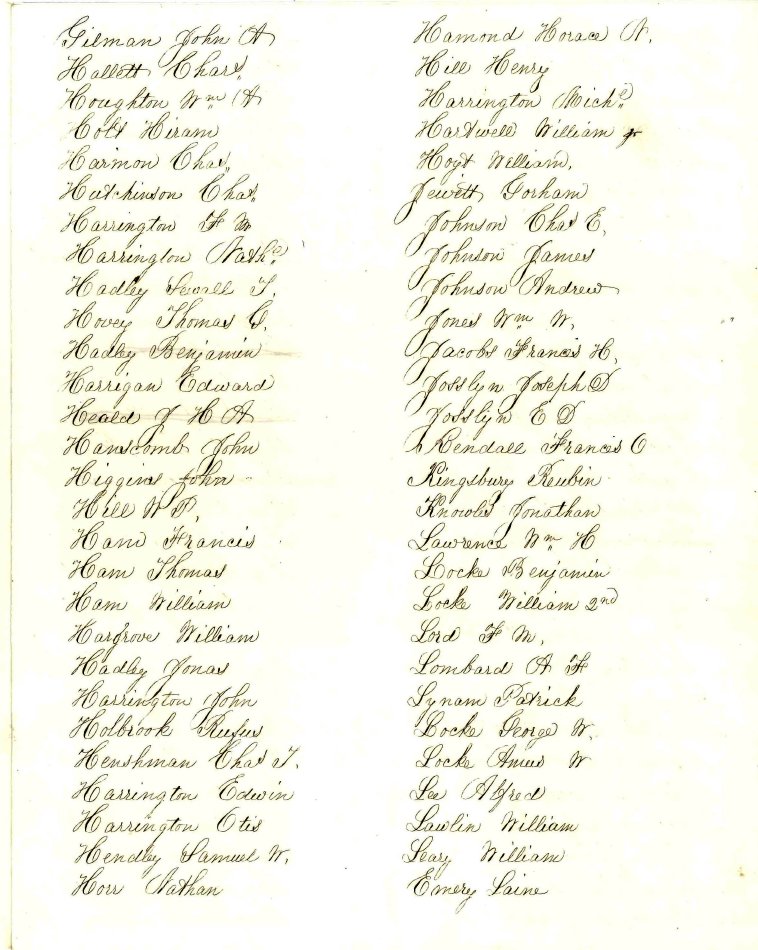 Gilman John A
Hallett Chas.
Houghton Wm A
Holt Hiram
Harmon Chas.
Hutchinson Chas.
Harrington F W
Harrington Nathl.
Hadley Sewall T.
Hovey Thomas G.
Hadley Benjamin
Harrigan Edward
Heald J H A
Hanscomb John
Higgins John
Hill W P,
Ham Francis
Ham Thomas
Ham William
Hargrove William
Hadley Jonas
Harrington John
Holbrook Rufus
Henshman Chas T.
Harrington Edwin
Harrington Otis
Hendley Samuel W.
Horr Nathan
Hamond Horace N.
Hill Henry
Harrington Michl.
Hartwell William Jr
Hoyt William,
Jewett Gorham
Johnson Chas E,
Johnson James
Johnson Andrew
Jones Wm W,
Jacobs Francis H,
Josslyn Joseph D
Josslyn E D
Kendall Francis O
Kingsbury Reubin
Knowles Jonathan
Lawrence Wm H
Locke Benjamin
Locke William 2nd
Lord F M,
Lombard A F
Lynam Patrick
Locke George W,
Locke W
Lee Alfred
Lawlin William
Leary William
Emery Laine